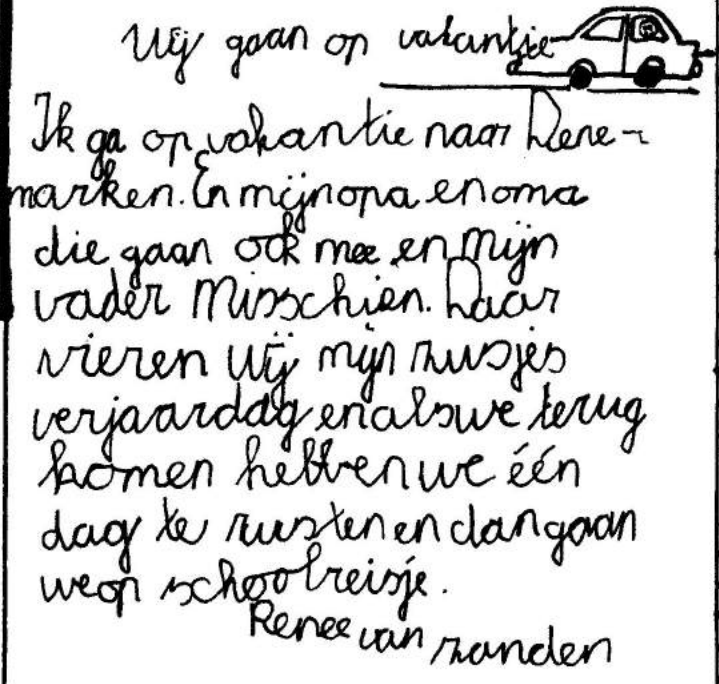 Wij gaan op vakantie
Ik ga op vakantie naar Dene-
marken. En mijn opa en oma
die gaan ook mee en mijn
vader Misschien. Daar
vieren wij mijn zusjes
verjaardag en als we terug
komen hebben we één
dag te rusten en dan gaan
we op schoolreisje.
Renee van zanden